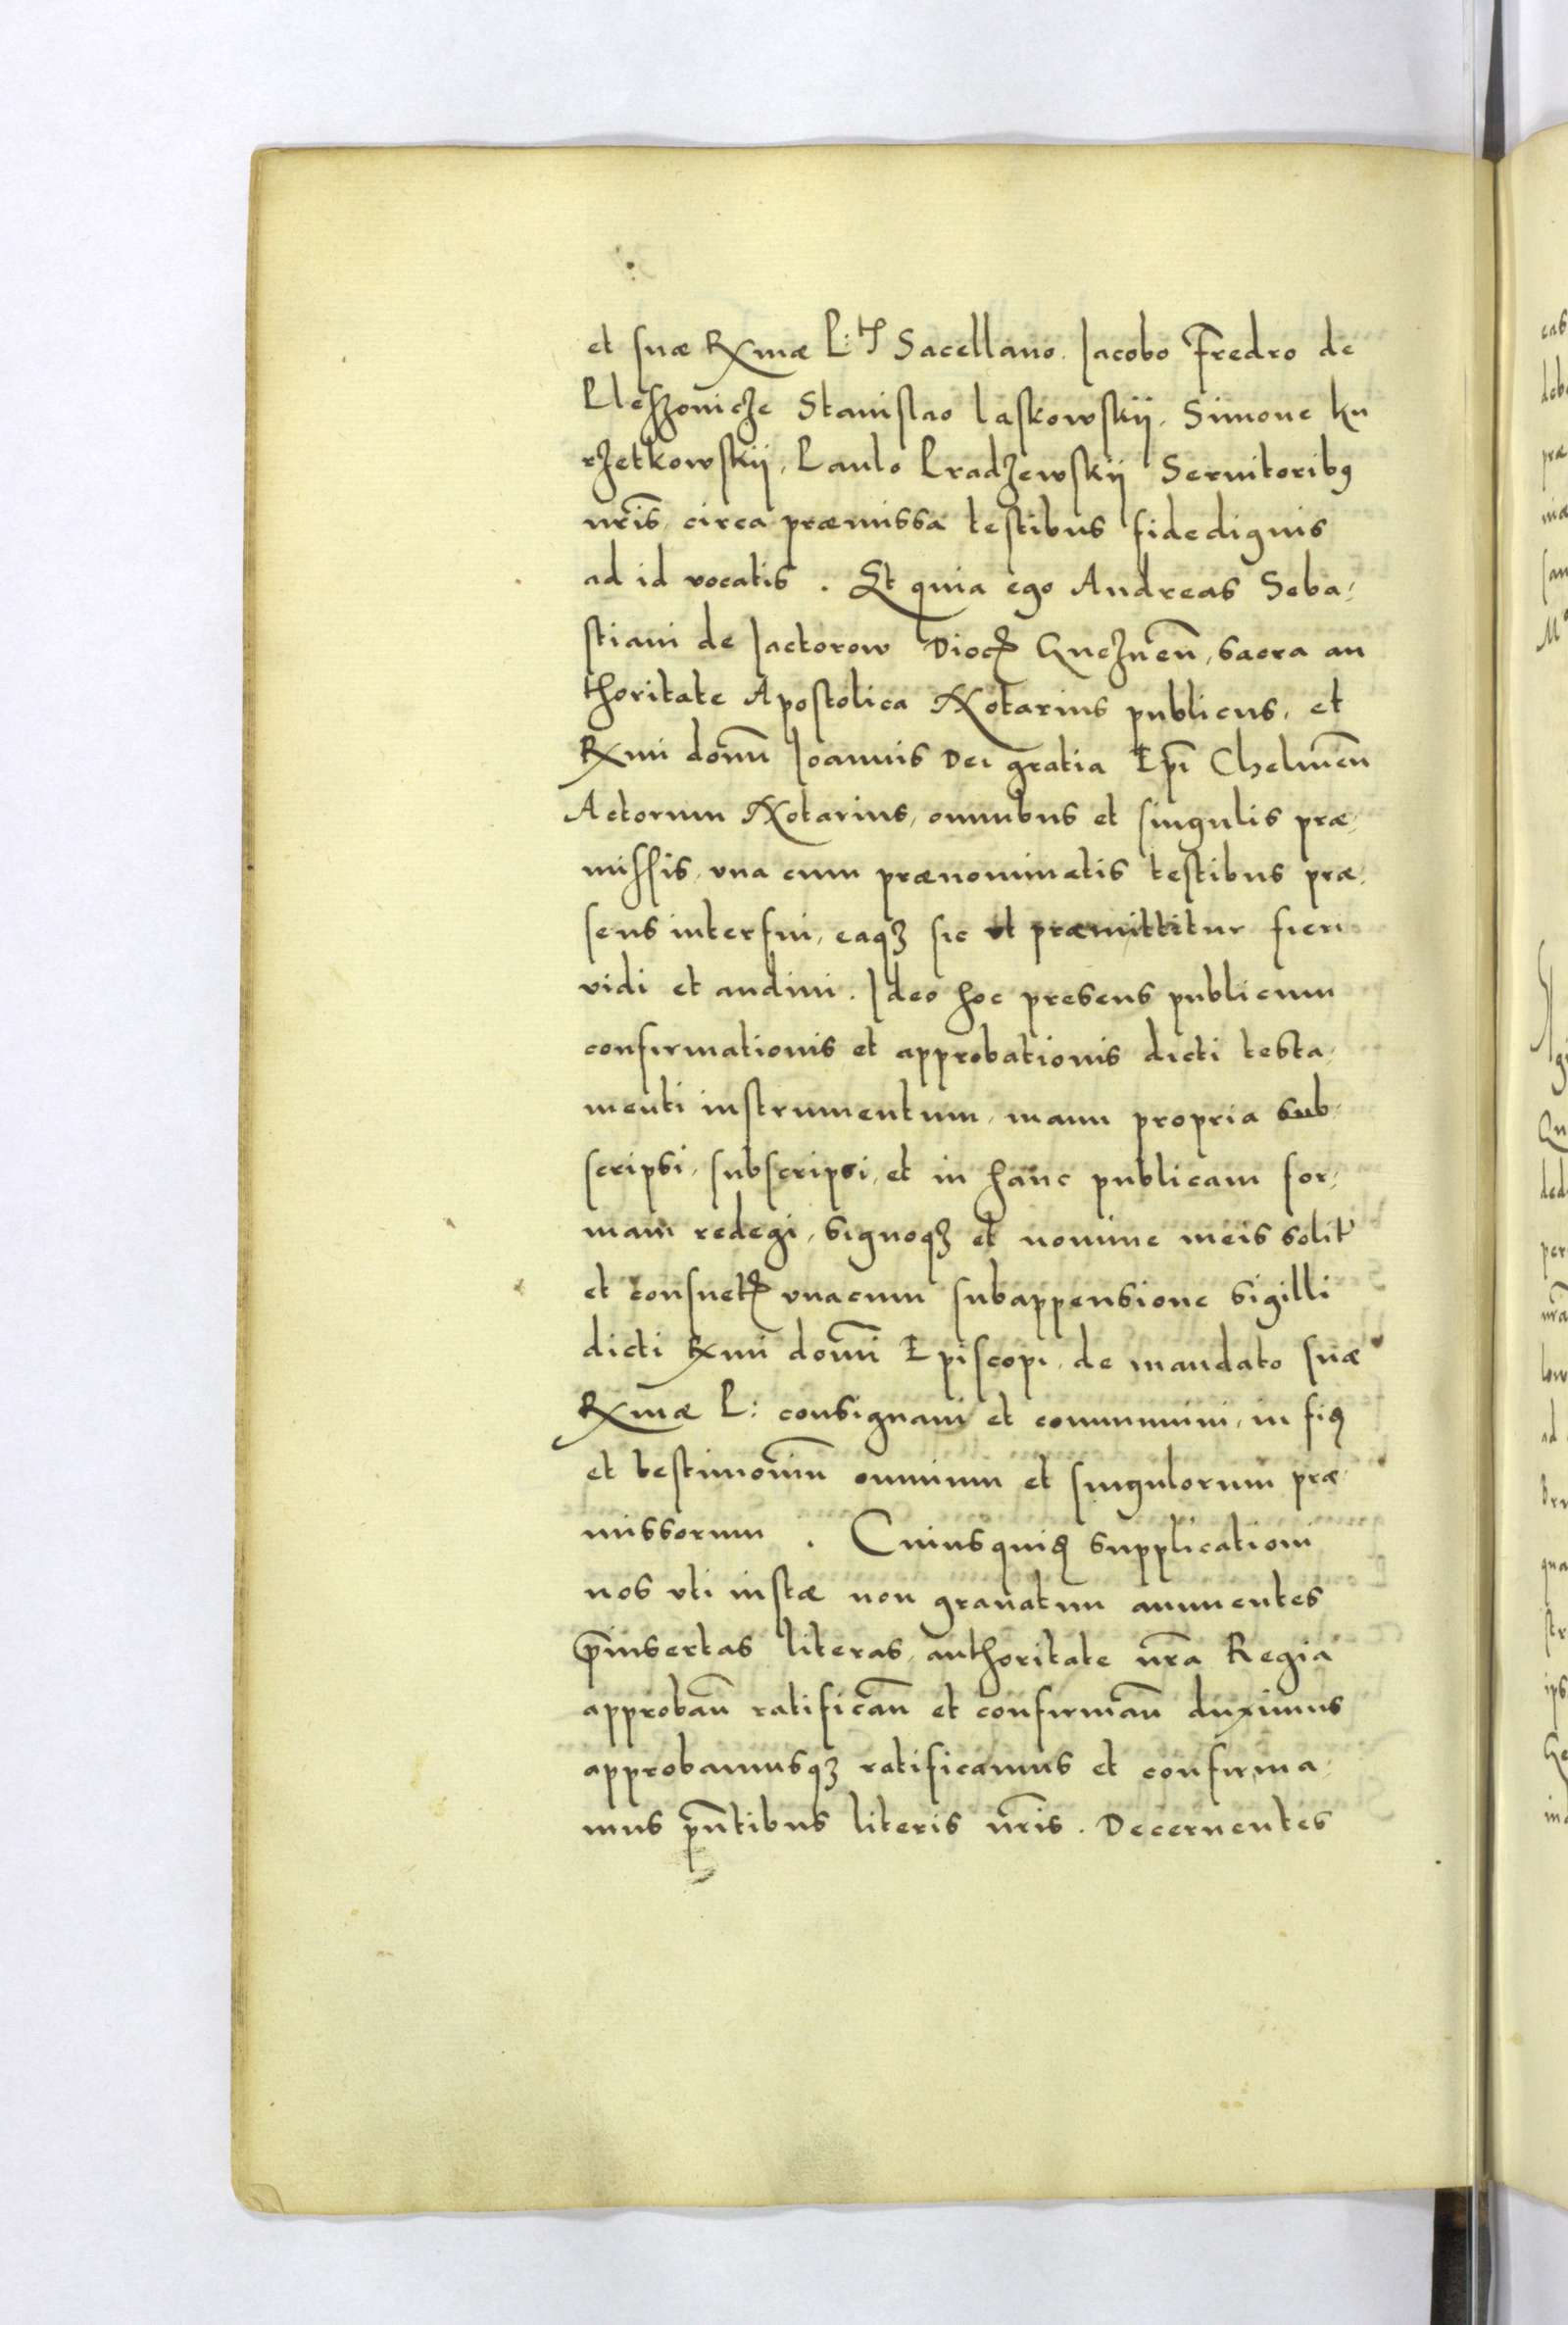 et suæ Rxmæ P: tis Sacellano. Jacobo Fredro de
Pleſzouicze Stanislao laskowskij, Simone ku
rzetkowskij, Paulo Pradzewskij Seruitoribus
nris circa præmissa testibus fidedignis
ad id vocatis. Et quia ego Andreas Seba-
stiani de Jactorow Dioc Gneznen, sacra au
thoritate Apostolica Notarius publicus, et
Rxmi domi Joannis Dei gratia Epi Chelmen
Actorum Notarius, omnibus et singulis præ-
missis, vna cum prænominatis testibus præ-
sens interfui, eaq sic vt præmittitur fieri
vidi et audiui. Ideo hoc presens publicum
confirmationis et approbationis dicti testa-
menti instrumentum, manu propria sub-
scripsi, subscripsi, et in hanc publicam for-
mam redegi, signoq et nomine meis solit
et consuet vnacum subappensione sigilli
dicti Rxmi domi Episcopi, de mandato suæ
Rxmæ P: consignaui et communiui, in fid
et testimoniu omnium et singulorum præ-
missorum. Cuiusquid supplicationi
nos vti iustæ non grauatim annuentes
præinsertas literas, authoritate nra Regia
approban ratifican et confirman duximus
approbamusq ratificamus et confirma-
mus pntibus literis nris. Decernentes